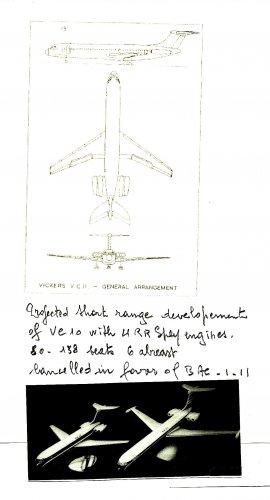 VICKERS V.C.11 – GENERAL ARRANGEMENT
Projected short range developement
of VC10 with 4 RR Spey engines.
80 - 138 seats 6 abreast
cancelled in favor of BAC - 1-11